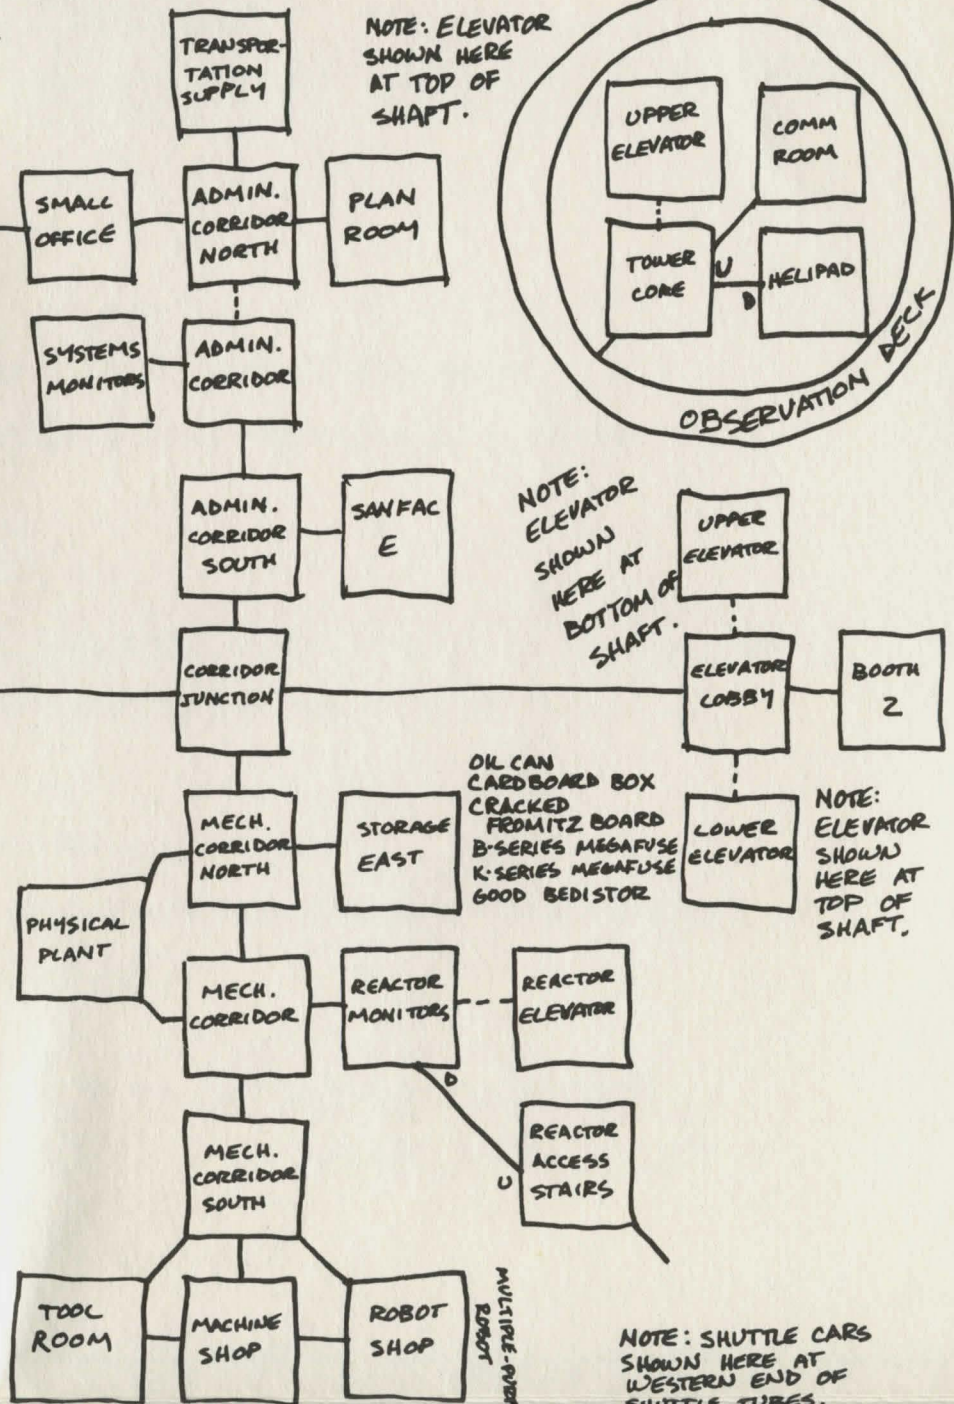 TRANSPOR-
TATION
SUPPLY
NOTE: ELEVATOR
SHOWN HERE
AT TOP OF
SHAFT.
UPPER
ELEVATOR
COMM
ROOM
SMALL
OFFICE
ADMIN.
CORRIDOR
NORTH
PLAN
ROOM
TOWER
CORE
U
D
HELIPAD
OBSERVATION DECK
SYSTEMS
MONITORS
ADMIN.
CORRIDOR
ADMIN.
CORRIDOR
SOUTH
SANFAC
E
NOTE:
ELEVATOR
SHOWN
HERE AT
BOTTOM OF
SHAFT.
UPPER
ELEVATOR
CORRIDOR
JUNCTION
ELEVATOR
LOBBY
BOOTH
2
MECH.
CORRIDOR
NORTH
STORAGE
EAST
OIL CAN
CARDBOARD BOX
CRACKED
FROMITZ BOARD
B-SERIES MEGAFUSE
K-SERIES MEGAFUSE
GOOD BEDISTOR
LOWER
ELEVATOR
NOTE:
ELEVATOR
SHOWN
HERE AT
TOP OF
SHAFT.
PHYSICAL
PLANT
MECH.
CORRIDOR
REACTOR
MONITORS
REACTOR
ELEVATOR
D
U
REACTOR
ACCESS
STAIRS
MECH.
CORRIDOR
SOUTH
TOOL
ROOM
MACHINE
SHOP
ROBOT
SHOP
MULTIPLE-
ROBOT
NOTE: SHUTTLE CARS
SHOWN HERE AT
WESTERN END OF
SHUTTLE TUBES.